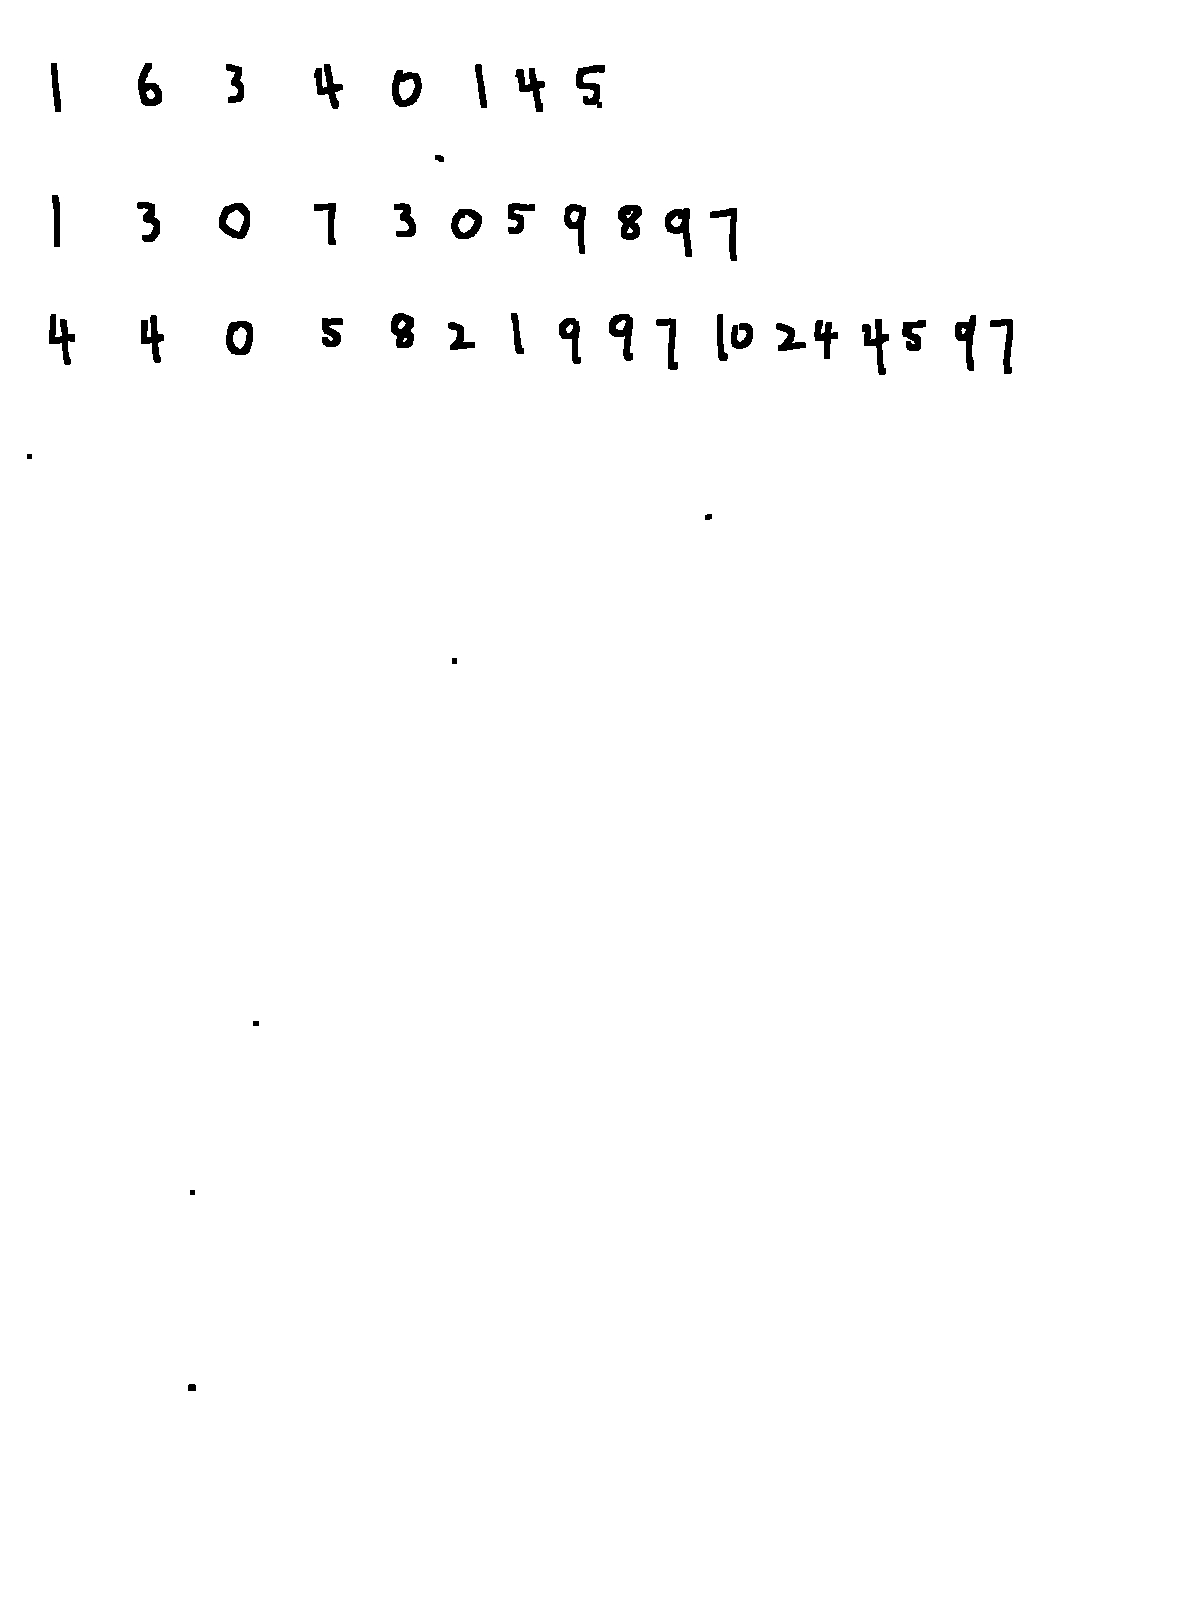 1 6 3 4 0 1 4 5
1 3 0 7 3 0 5 9 8 9 7
4 4 0 5 8 2 1 9 9 7 10 24 4 5 9 7